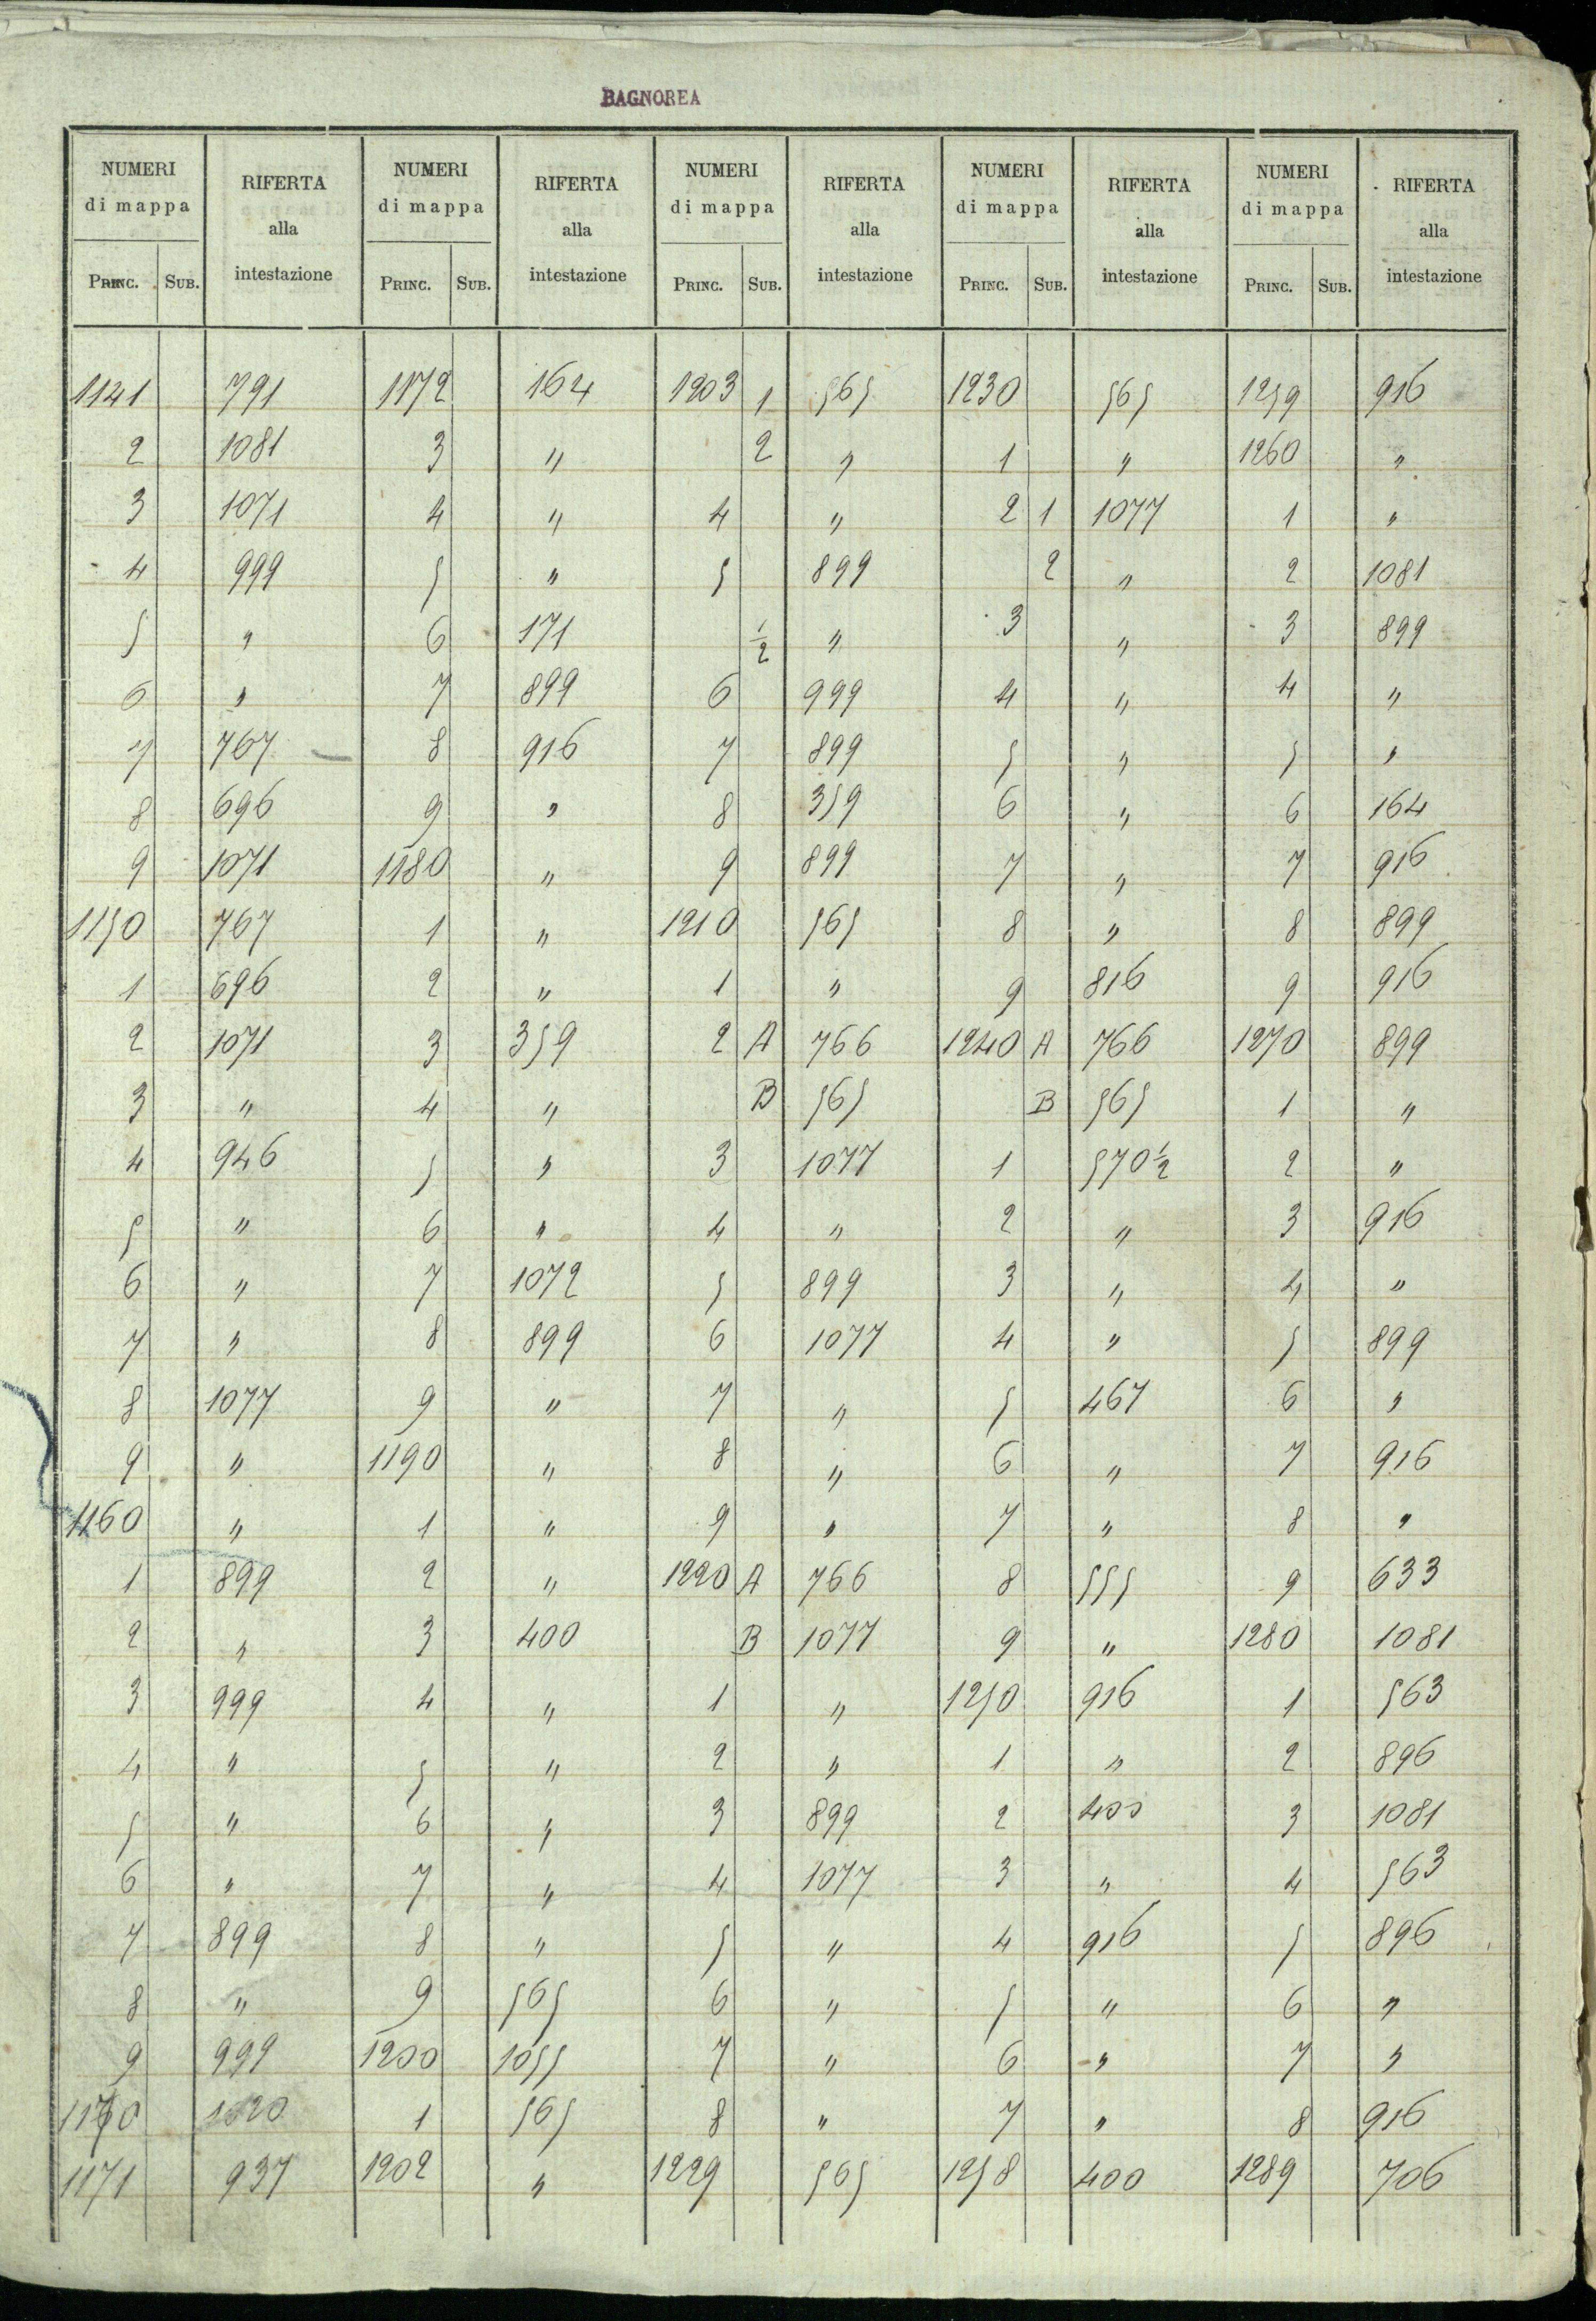 BAGNOREA
NUMERI di mappa RIFERTA alla intestazione NUMERI di mappa RIFERTA alla intestazione NUMERI di mappa RIFERTA alla intestazione NUMERI di mappa RIFERTA alla intestazione NUMERI di mappa RIFERTA alla intestazione
PRINC. SUB. PRINC. SUB. PRINC. SUB. PRINC. SUB. PRINC. SUB.
1141 791 1172 164 1203 1 565 1230 565 1259 916
2 1081 3 " 2 " 1 " 1260 "
3 1071 4 " 4 " 2 1 1077 1 "
4 999 5 " 5 899 2 " 2 1081
5 " 6 171 1/2 " 3 " 3 899
6 " 7 899 6 999 4 " 4 "
7 767 8 916 7 899 5 " 5 "
8 696 9 " 8 359 6 " 6 164
9 1071 1180 " 9 899 7 " 7 916
1150 767 1 " 1210 565 8 " 8 899
1 696 2 " 1 " 9 816 9 916
2 1071 3 359 2 A 766 1240 A 766 1270 899
3 " 4 " B 565 B 565 1 "
4 946 5 " 3 1077 1 570 1/2 2 "
5 " 6 " 4 " 2 " 3 916
6 " 7 1072 5 899 3 " 4 "
7 " 8 899 6 1077 4 " 5 899
8 1077 9 " 7 " 5 467 6 "
9 " 1190 " 8 " 6 " 7 916
1160 " 1 " 9 " 7 " 8 "
1 899 2 " 1220 A 766 8 555 9 633
2 " 3 400 B 1077 9 " 1280 1081
3 999 4 " 1 " 1250 916 1 563
4 " 5 " 2 " 1 " 2 896
5 " 6 " 3 899 2 400 3 1081
6 " 7 " 4 1077 3 " 4 563
7 899 8 " 5 " 4 916 5 896
8 " 9 565 6 " 5 " 6 "
9 999 1200 1055 7 " 6 " 7 "
1170 1020 1 565 8 " 7 " 8 916
1171 937 1202 " 1229 565 1258 400 1289 706